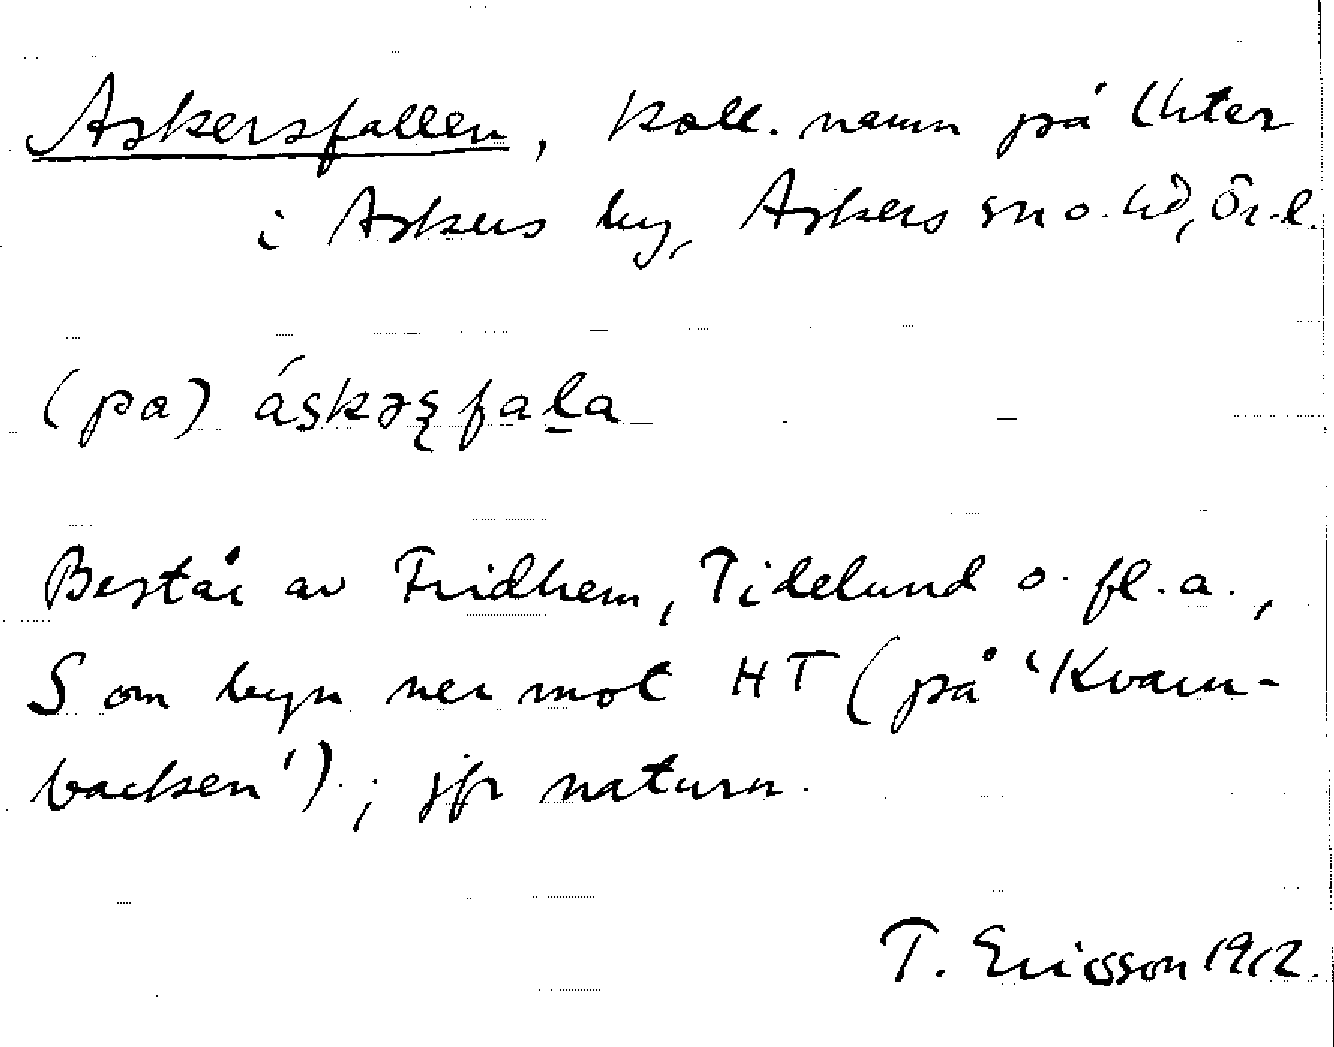 Askersfallen, koll. namn på lhter
i Askers by, Askers sn o. hd, Ör. l.
(pa) áskəʂfaḻa
Består av Fridhem, Tidelund o. fl. a.,
S om byn ner mot HT (på 'Kvarn-
backen'); jfr naturn.
T. Ericsson 1912.